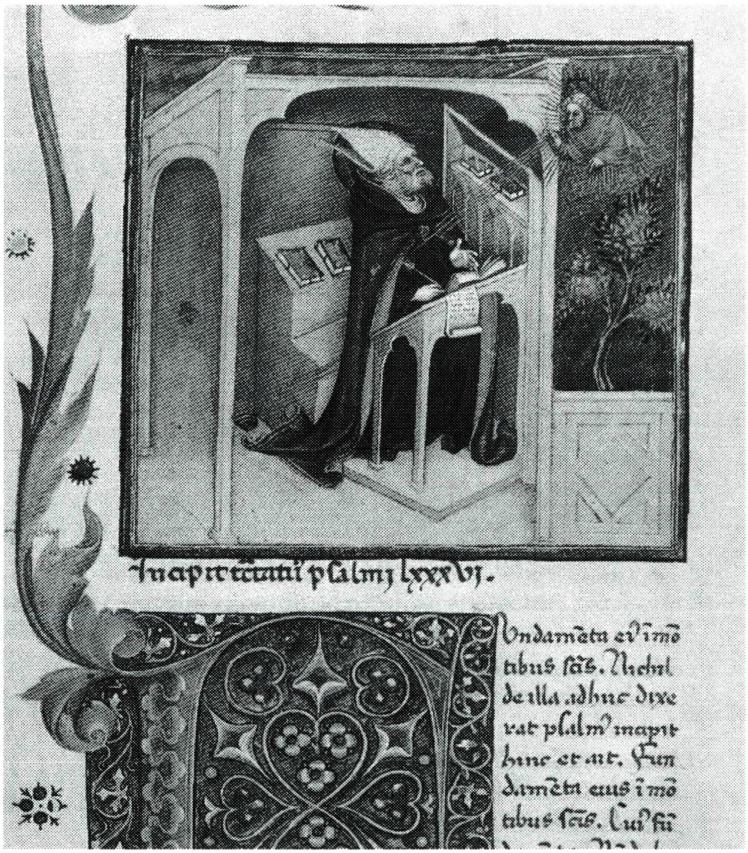 Incipit tr̄ctatu᷒ psalmj lxxxvj.
Undam̄eta ei᷒ ī mō
tibus sc̄is. Nichil
de illa adhuc dixe
rat psalm᷒ incipit
hinc et ait. Fun
dam̄eta eius ī mō
tibus sc̄is. Cui᷒ fū